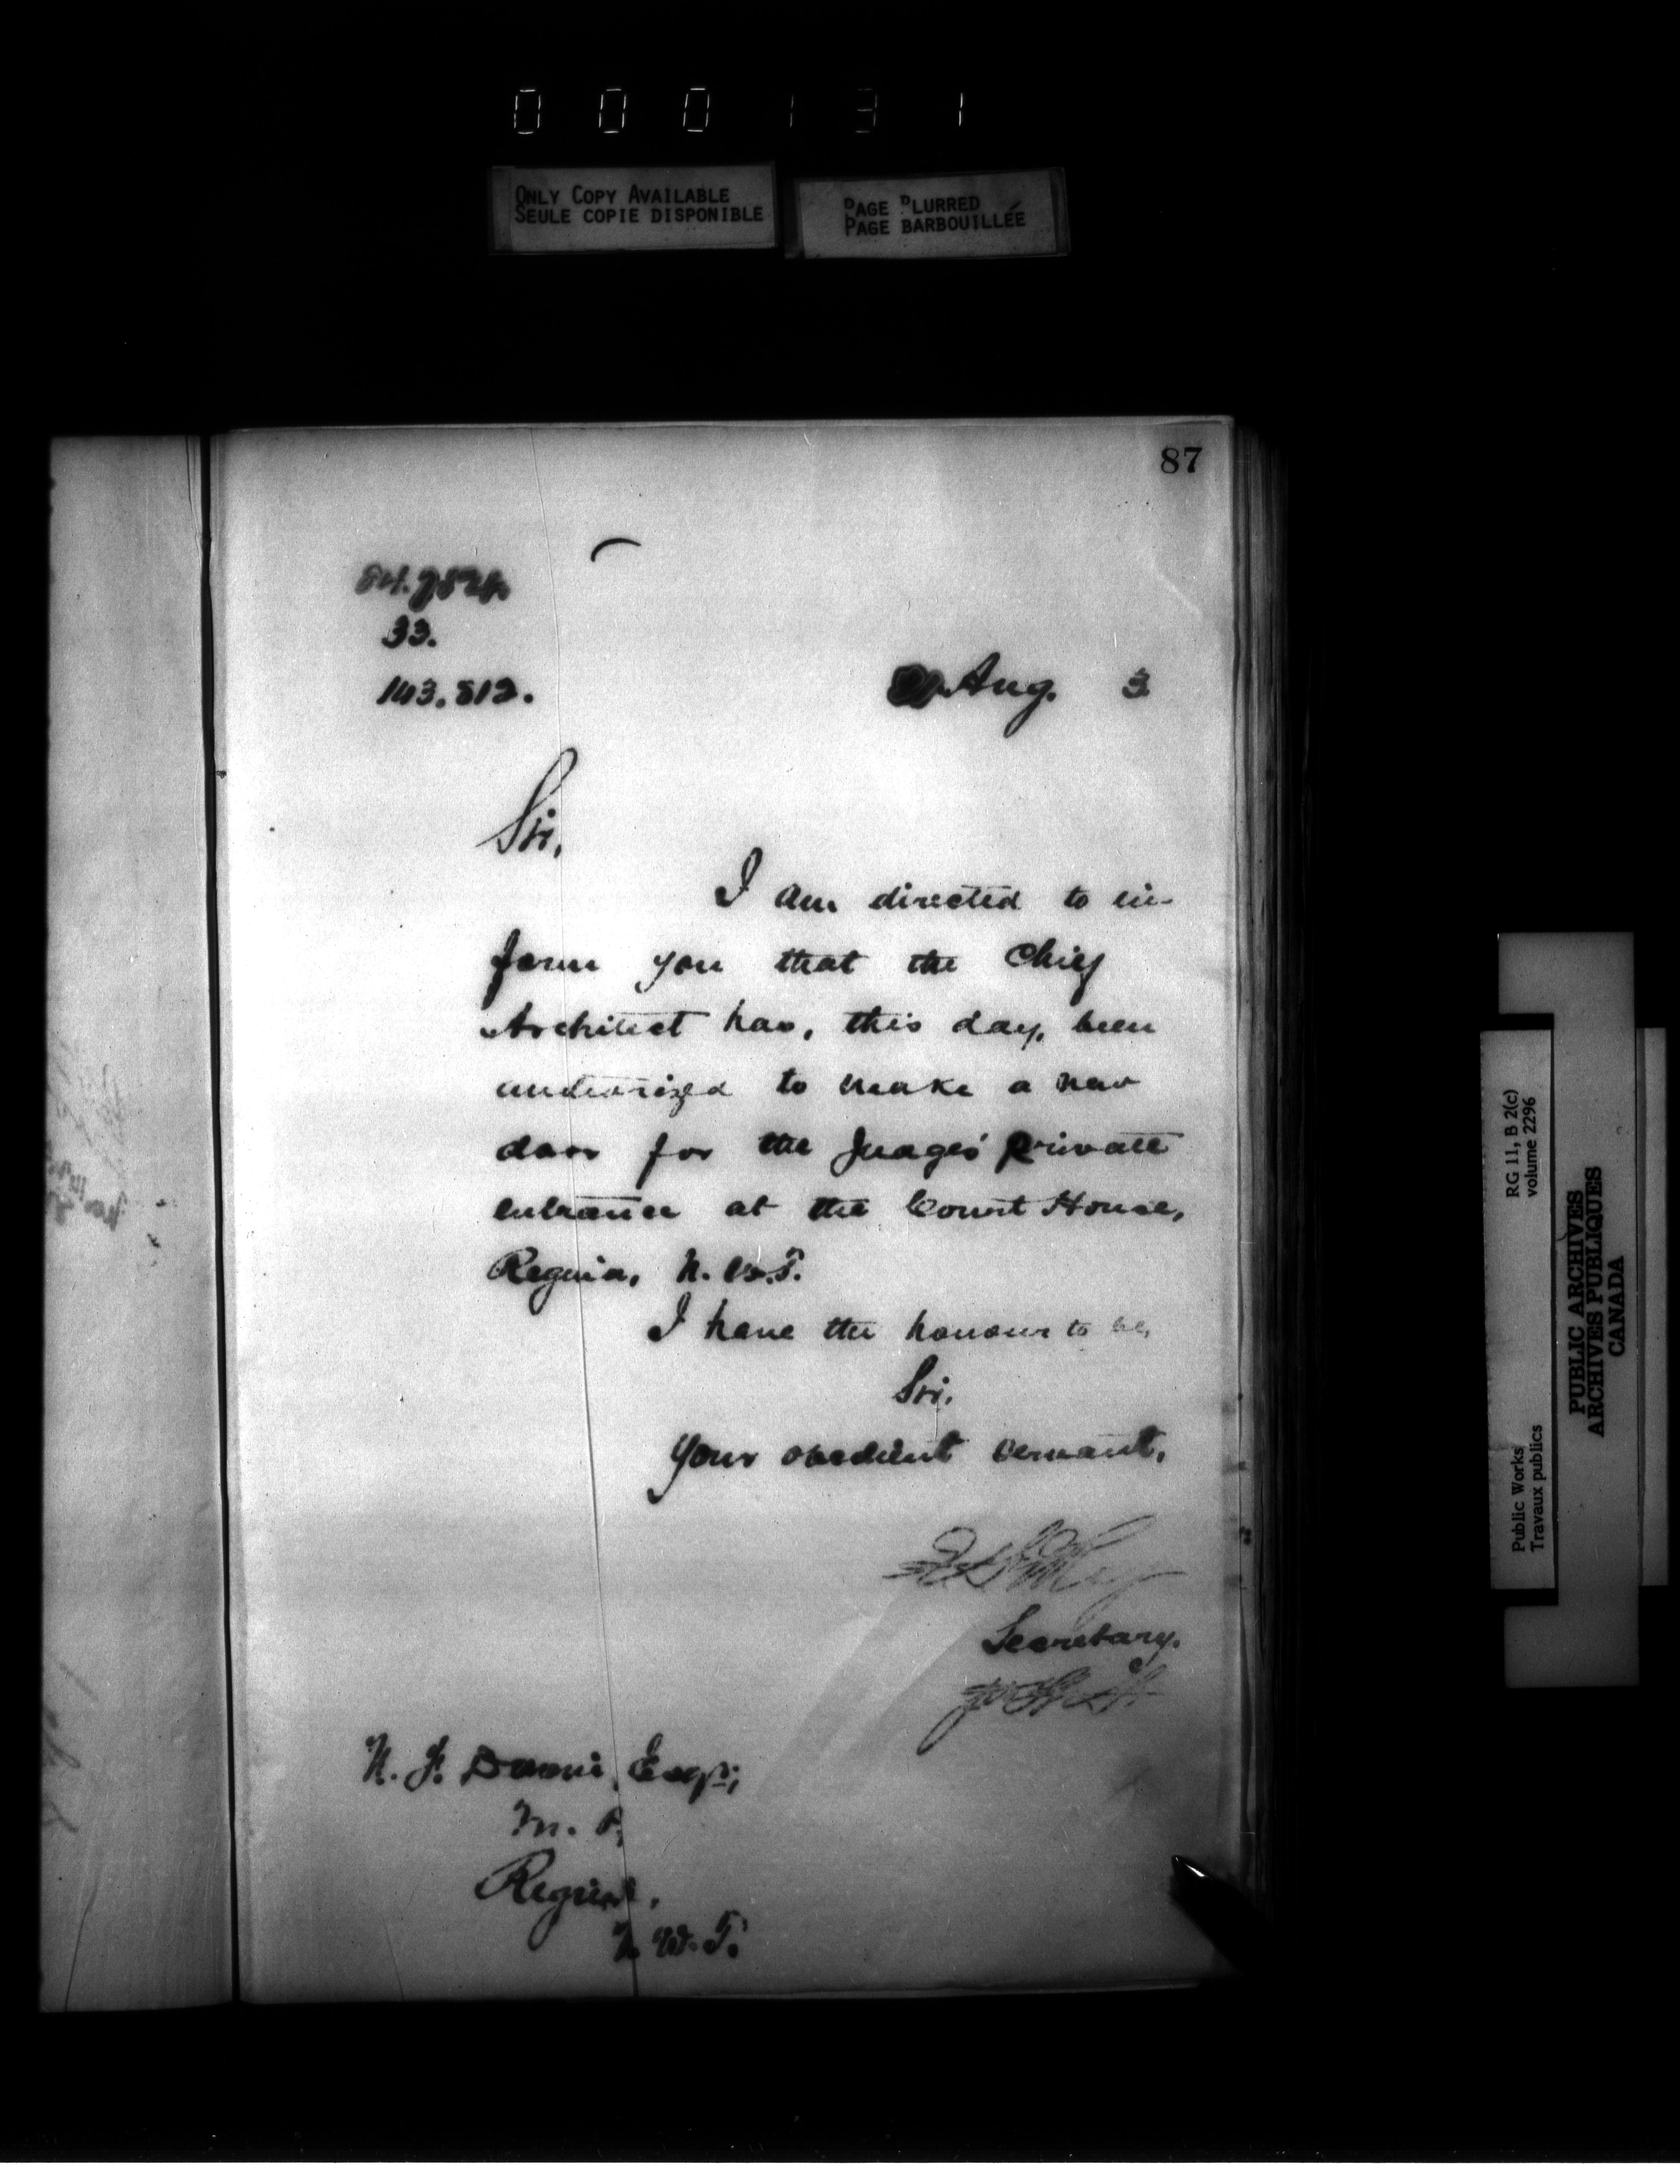 000131
ONLY COPY AVAILABLE
SEULE COPIE DISPONIBLE
PAGE BLURRED
PAGE BARBOUILLÉE
87
33.
143.812.
Aug. 3
Sir,
I am directed to in-
form you that the Chief
Architect has, this day, been
authorized to make a new
door for the Judges' private
entrance at the Court House,
Regina, N. W. T.
I have the honour to be,
Sir,
Your obedient servant,
Secretary.
N. F. Davin, Esqr;
M. P.
Regina,
N. W. T.
RG 11, B 2(c)
volume 2296
Public Works
Travaux publics
PUBLIC ARCHIVES
ARCHIVES PUBLIQUES
CANADA